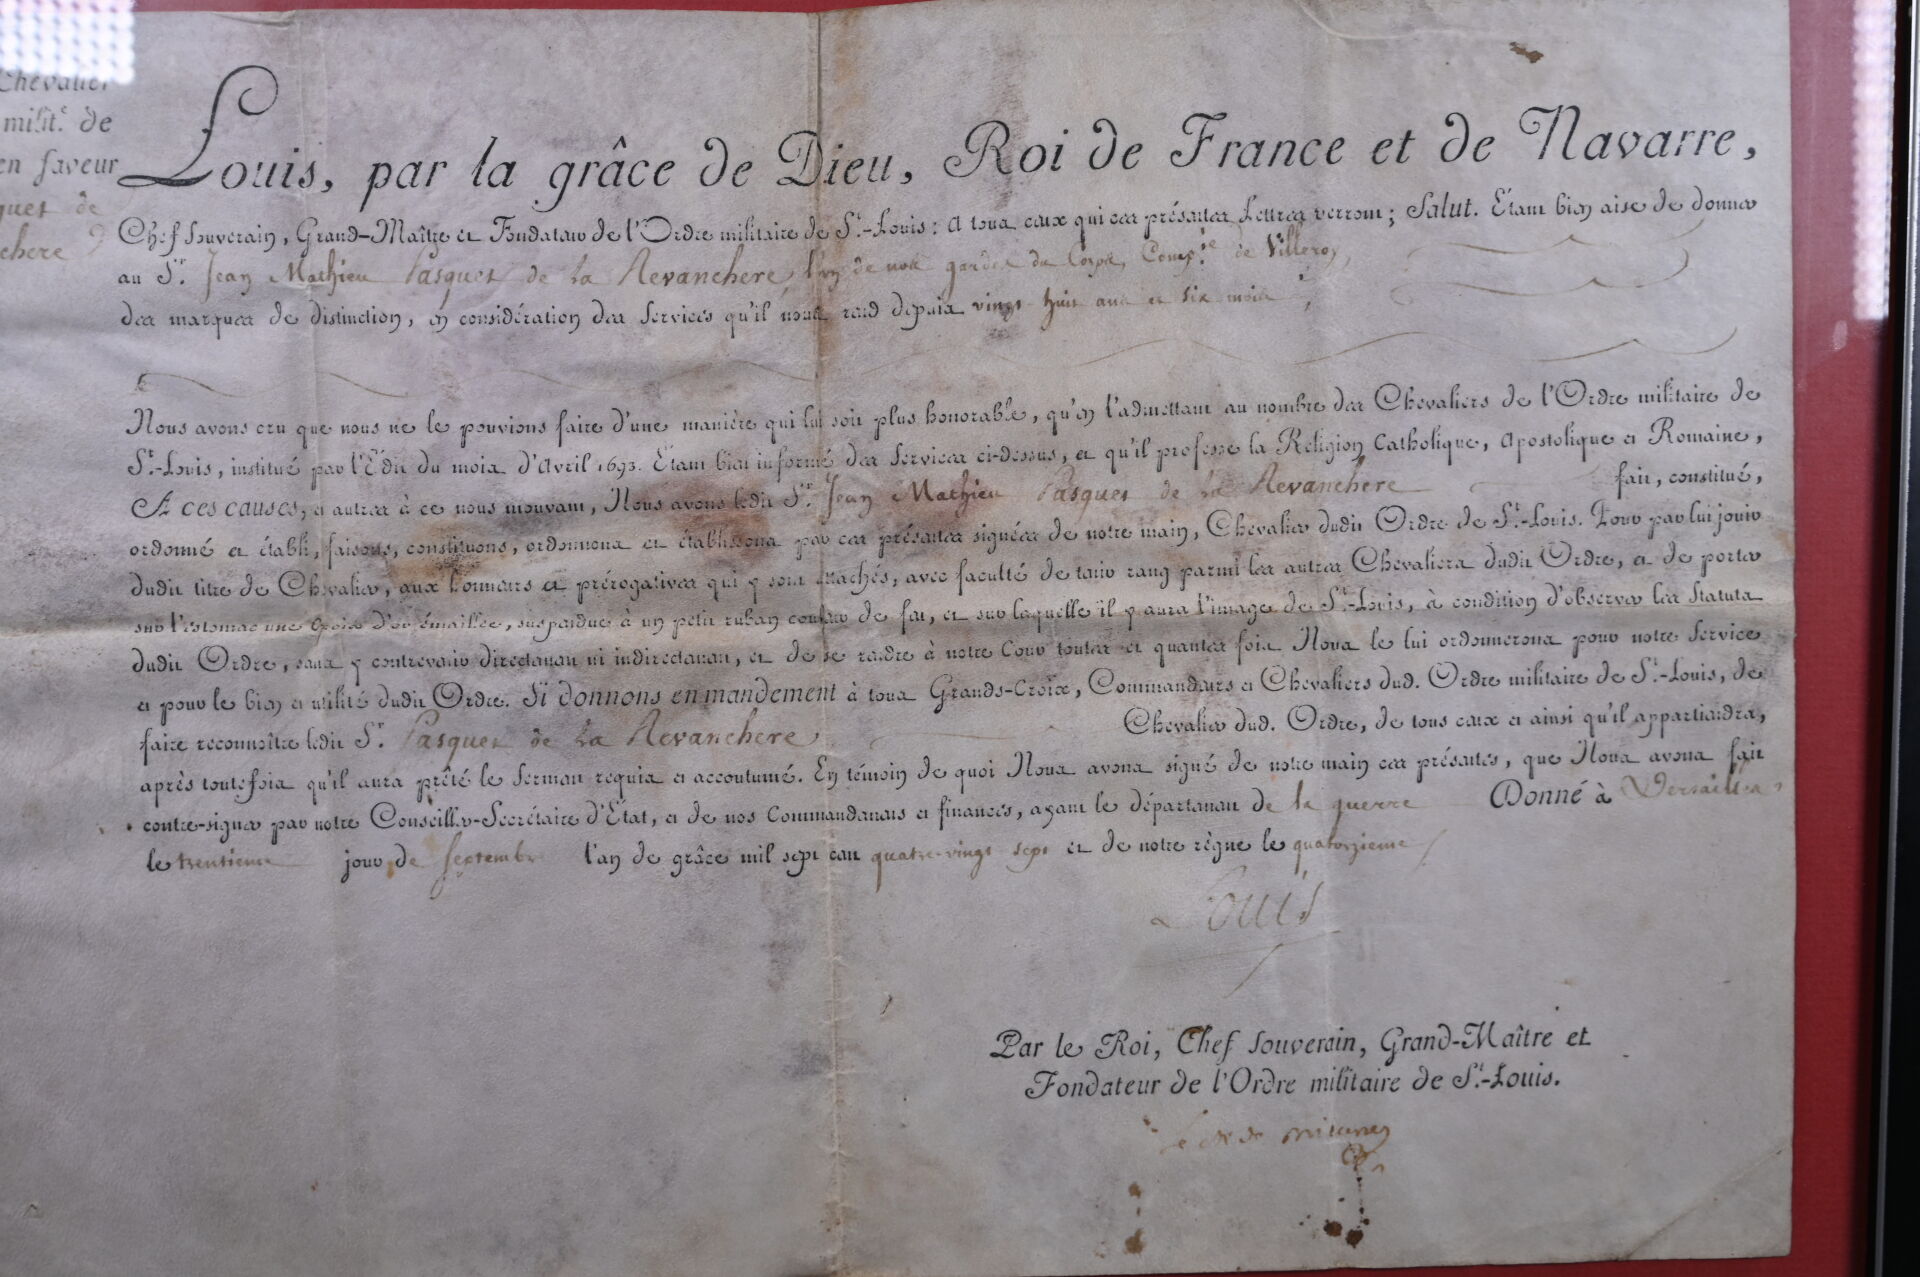 Chevalier
milit.e de
en faveur
ques de
chere
Louis, par la grâce de Dieu, Roi de France et de Navarre,
Chef Souverain, Grand-Maître et Fondateur de l'Ordre militaire de St.-Louis: A tous ceux qui ces présentes Lettres verront; Salut. Étant bien aise de donner
au Sr. Jean Mathieu Pasquet de La Revanchere, l'un de nos gardes du Corps, Comp.ie de Villeroy,
des marques de distinction, en considération des Services qu'il nous rend depuis vingt huit ans et six mois
Nous avons cru que nous ne le pouvions faire d'une manière qui lui soit plus honorable, qu'en l'admettant au nombre des Chevaliers de l'Ordre militaire de
St.-Louis, institué par l'Édit du mois d'Avril 1693. Étant bien informé des Services ci-dessus, et qu'il professe la Religion Catholique, Apostolique et Romaine,
A ces causes, et autres à ce nous mouvant, Nous avons ledit Sr. Jean Mathieu Pasquet de La Revanchere fait, constitué,
ordonné et établi, faisons, constituons, ordonnons et établissons par ces présentes signées de notre main, Chevalier dudit Ordre de St.-Louis. Pour par lui jouir
dudit titre de Chevalier, aux honneurs et prérogatives qui y sont attachés, avec faculté de tenir rang parmi les autres Chevaliers dudit Ordre, et de porter
sur l'estomac une Croix d'or émaillée, suspendue à un petit ruban couleur de feu, et sur laquelle il y aura l'image de St.-Louis, à condition d'observer les Statuts
dudit Ordre, sans y contrevenir directement ni indirectement, et de se rendre à notre Cour toutes et quantes fois Nous le lui ordonnerons pour notre Service
et pour le bien et utilité dudit Ordre. Si donnons en mandement à tous Grands-Croix, Commandeurs et Chevaliers dud. Ordre militaire de St.-Louis, de
faire reconnoître ledit Sr. Pasquet de La Revanchere Chevalier dud. Ordre, de tous ceux et ainsi qu'il appartiendra,
après toutefois qu'il aura prêté le Serment requis et accoutumé. En témoin de quoi Nous avons signé de notre main ces présentes, que Nous avons fait
contre-signer par notre Conseiller-Secrétaire d'État, et de nos Commandemens et finances, ayant le département de la guerre Donné à Versailles
le trentieme jour de Septembre l'an de grâce mil sept cent quatre-vingt sept et de notre règne le quatorzieme
Louis
Par le Roi, Chef Souverain, Grand-Maître et
Fondateur de l'Ordre militaire de St.-Louis.